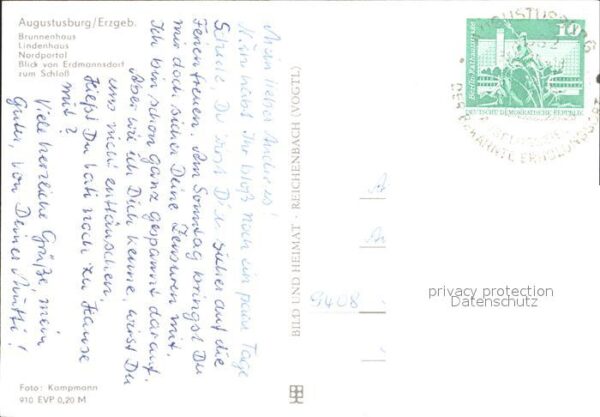 Augustusburg/Erzgeb.
Brunnenhaus
Lindenhaus
Nordportal
Blick von Erdmannsdorf
zum Schloß
Mein lieber Andreas!
Nun habt Ihr bloß noch ein paar Tage
Schule. Du wirst Dich sicher auf die
Ferien freuen. Am Sonntag bringst Du
mir doch sicher Deine Zensuren mit.
Ich bin schon ganz gespannt darauf.
Aber wie ich Dich kenne, wirst Du
uns nicht enttäuschen.
Hilfst Du Vati noch zu Hause
mit?
Viele herzliche Grüße, mein
Guter, von Deiner Mutti!
Foto: Kampmann
910 EVP 0,20 M
BILD UND HEIMAT · REICHENBACH (VOGTL)
A
An
9408
10
Berlin, Rathausstraße
DEUTSCHE DEMOKRATISCHE REPUBLIK
AUGUSTUSBURG
DER BEKANNTE ERHOLUNGSORT
privacy protection
Datenschutz